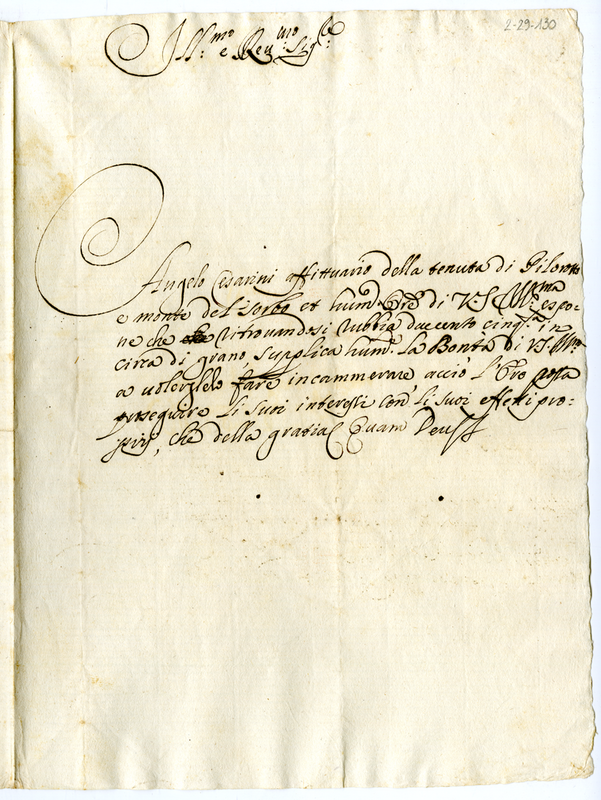 2-29-130
Ill:mo e Reu:mo Sig:re
Angelo Cesarini affittuario della tenuta di
e monte del Sorbo et hum:o Ore di V.S. Ill:ma espo-
ne che ritrouandosi rubbia ducento cinq:ta in
circa di grano, supplica hum:te la Bontà di V.S. Ill:ma
a uolerglelo fare incammerare acciò l'Oro possa
proseguire li suoi interessi con li suoi effetti pro-
prij, che della gratia Quam Deus